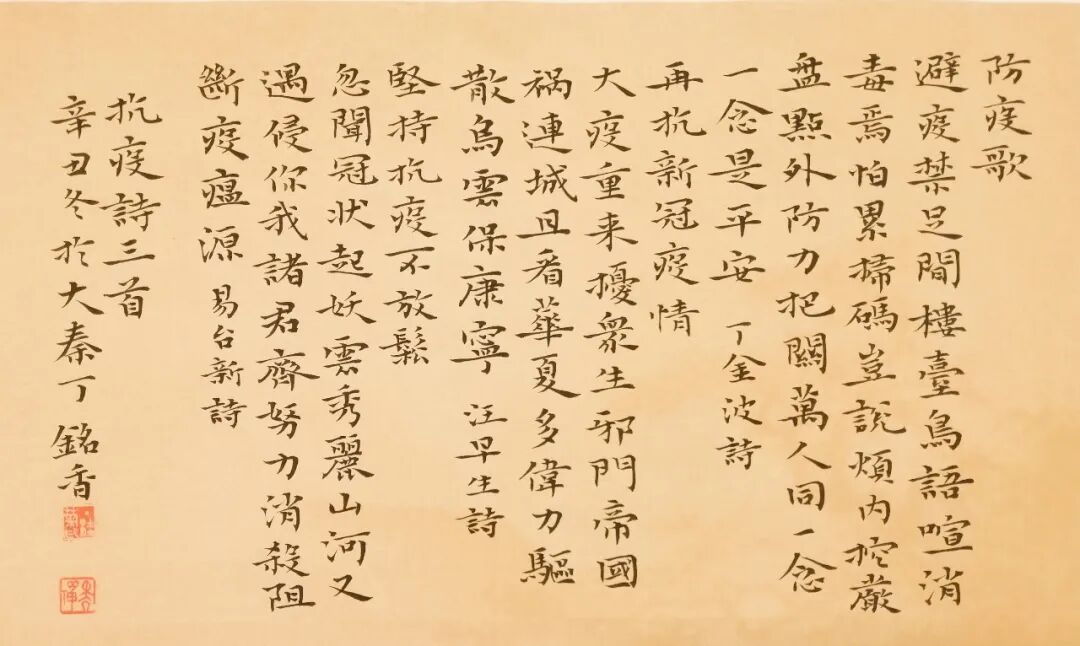 防疫歌
避疫禁足間樓臺鳥語喧消
毒焉怕累掃碼豈説煩内控嚴
盘點外防力把關萬人同一念
一念是平安 丁金波詩
再抗新冠疫情
大疫重来擾衆生邪門帝國
禍連城且看華夏多偉力驅
散烏雲保康寧 汪早生詩
堅持抗疫不放鬆
忽聞冠状起妖雲秀麗山河又
遇侵你我諸君齊努力消殺阻
斷疫瘟源 易台新詩
抗疫詩三首
辛丑冬於大秦丁銘香